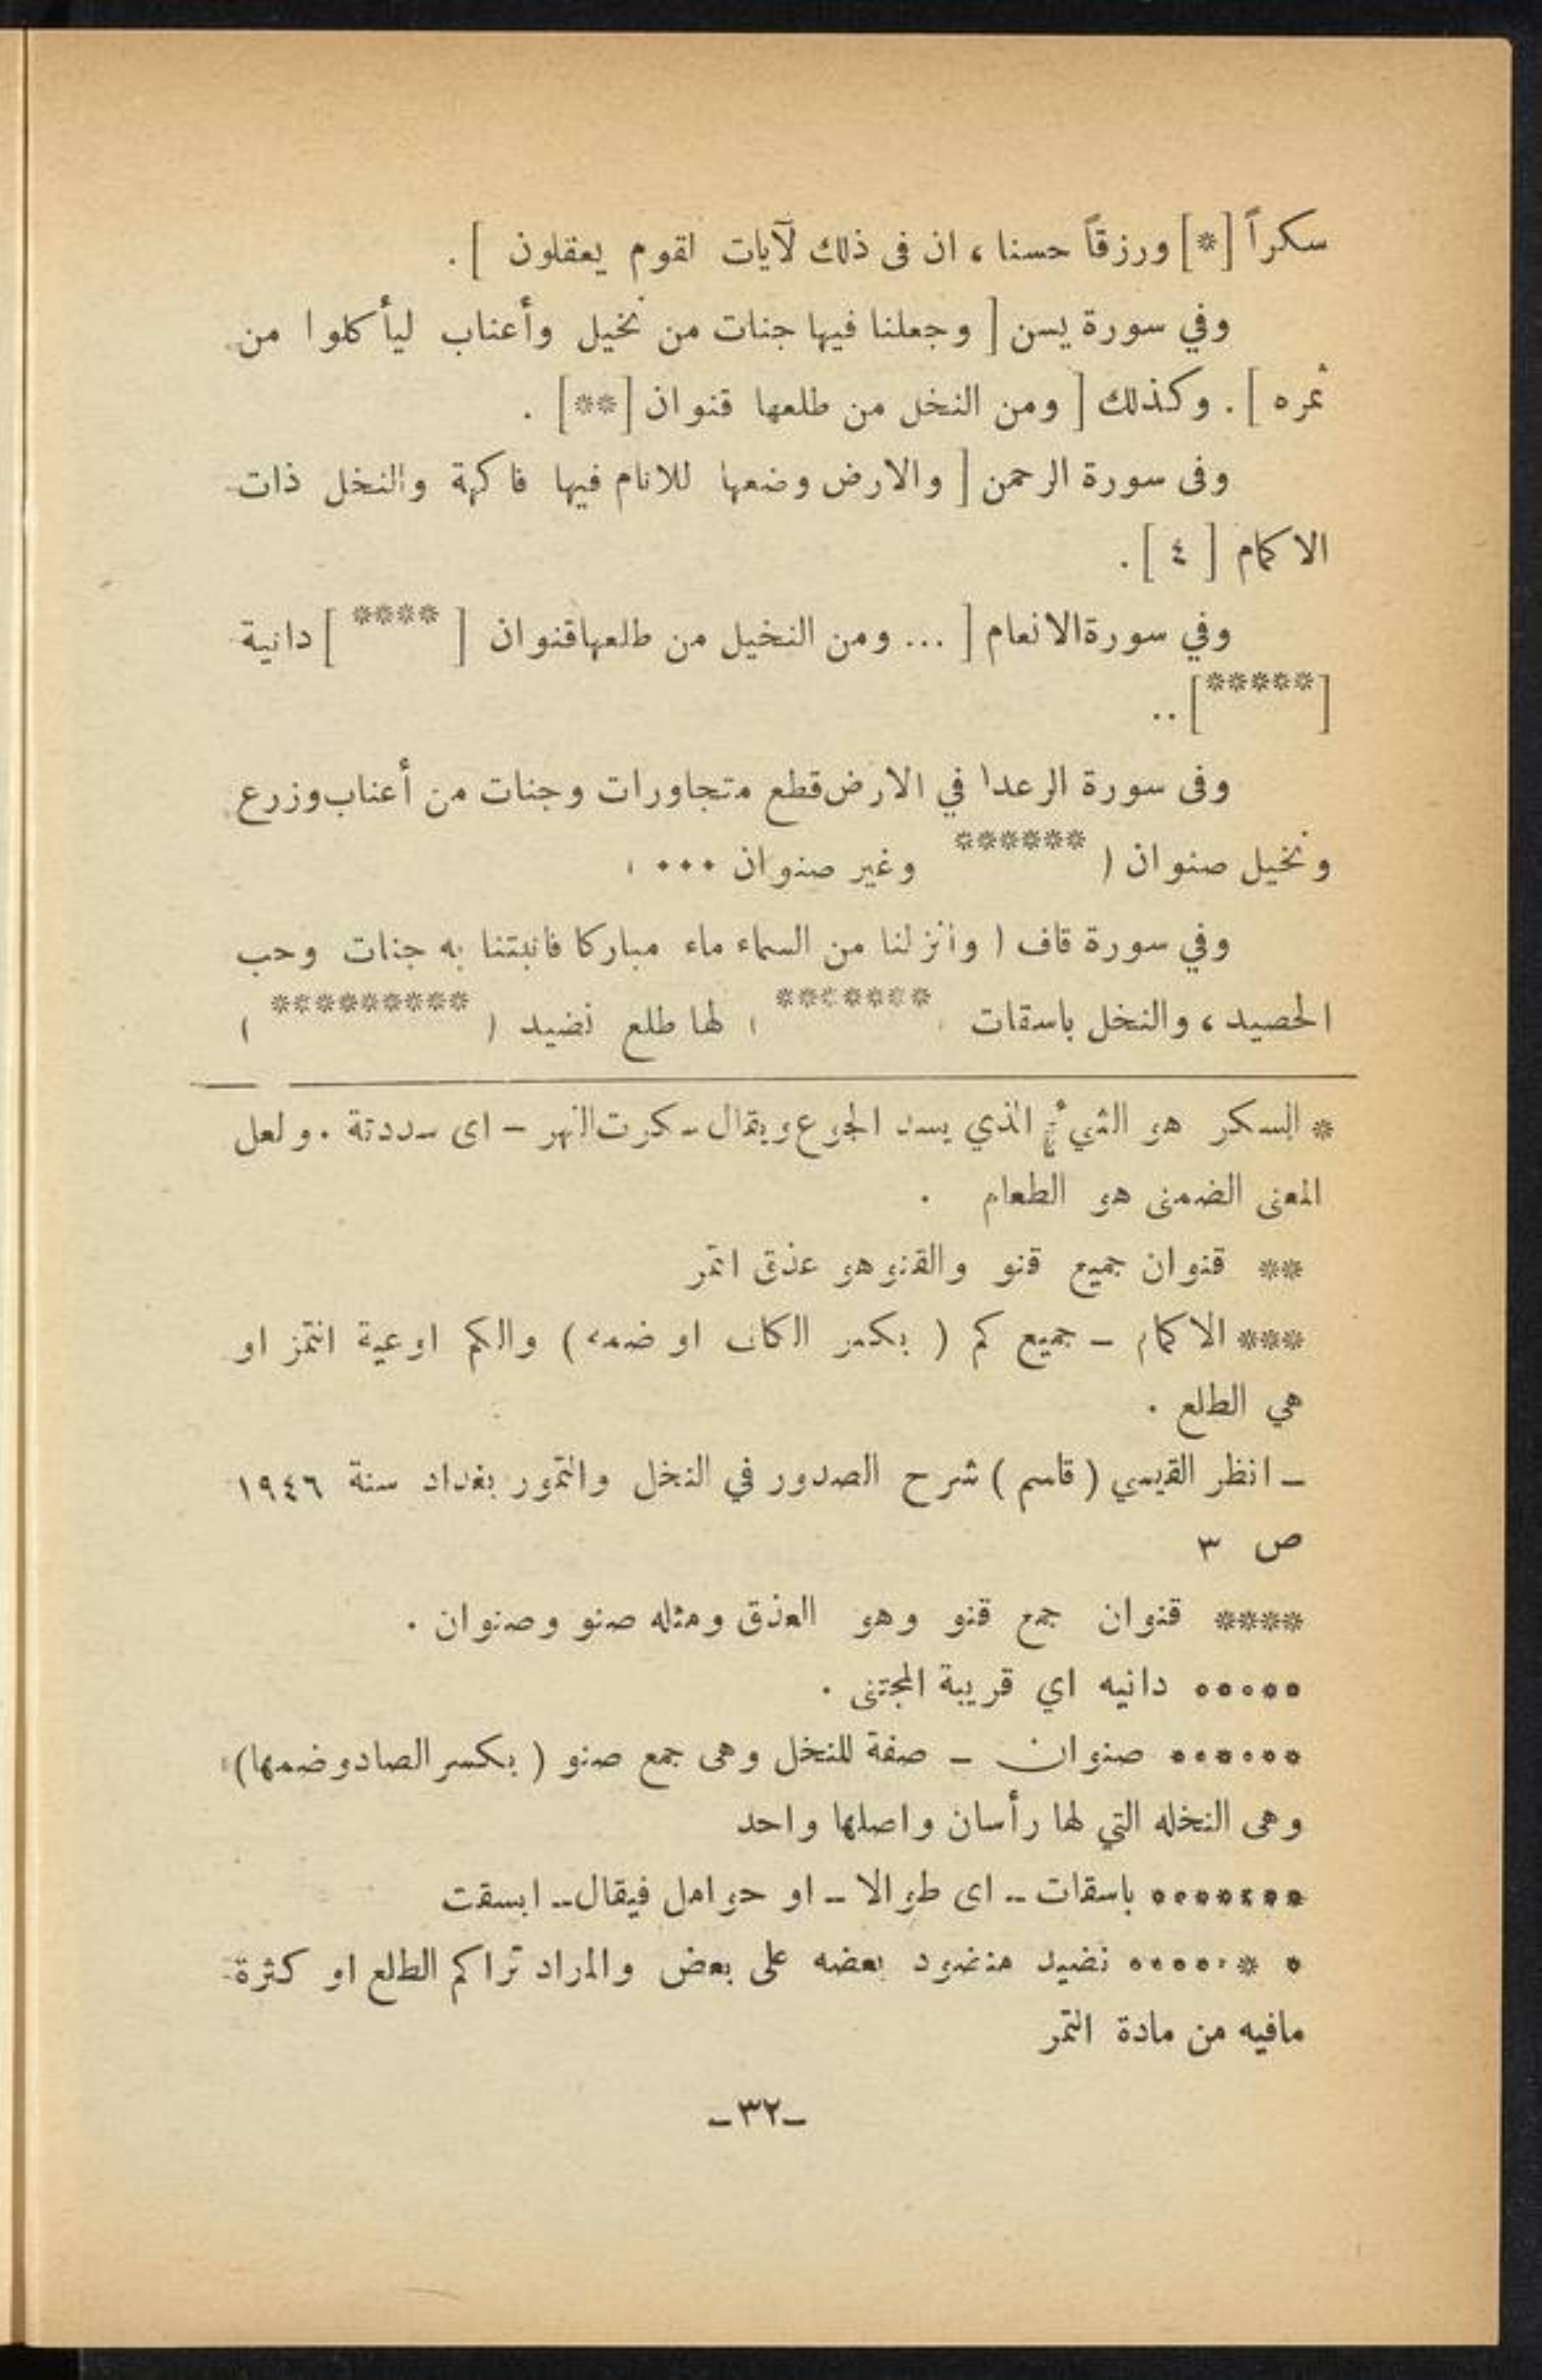 سكراً [*] ورزقاً حسنا ، ان فى ذلك لآيات لقوم يعقلون ] .
وفي سورة يسن [ وجعلنا فيها جنات من نخيل وأعناب ليأكلوا من
ثمره ] . وكذلك [ ومن النخل من طلعها قنوان [**] .
وفى سورة الرحمن [ والارض وضعها للانام فيها فاكهة والنخل ذات
الاكمام [ ٤ ] .
وفي سورةالانعام [ ... ومن النخيل من طلعهاقنوان [ **** ] دانية
[*****] ..
وفى سورة الرعدا في الارض قطع متجاورات وجنات من أعناب وزرع
ونخيل صنوان ( ****** وغير صنوان ...
وفي سورة قاف ( وأنزلنا من السماء ماء مباركا فانبتنا به جنات وحب
الحصيد ، والنخل باسقات ******* ) لها طلع نضيد ( ********* )
* السكر هو الشيء الذي يسد الجوع ويقال سكرت النهر – اى سددتة . ولعل
المعنى الضمنى هو الطعام .
** قنوان جميع قنو والقنو هو عذق اتمر
*** الاكمام – جميع كم ( بكسر الكاف او ضمه ) والكم اوعية التمز او
هي الطلع .
– انظر القيسي ( قاسم ) شرح الصدور في النخل والتمور بغداد سنة ١٩٤٦
ص ٣
**** قنوان جمع قنو وهو العذق ومثله صنو وصنوان .
***** دانيه اي قريبة المجتنى .
****** صنوان – صفة للنخل وهى جمع صنو ( بكسر الصاد وضمها)
وهى النخله التي لها رأسان واصلها واحد
******* باسقات – اى طوالا – او حوامل فيقال – ابسقت
* ******* نضيد منضود بعضه على بعض والمراد تراكم الطلع او كثرة
مافيه من مادة التمر
–٣٢–